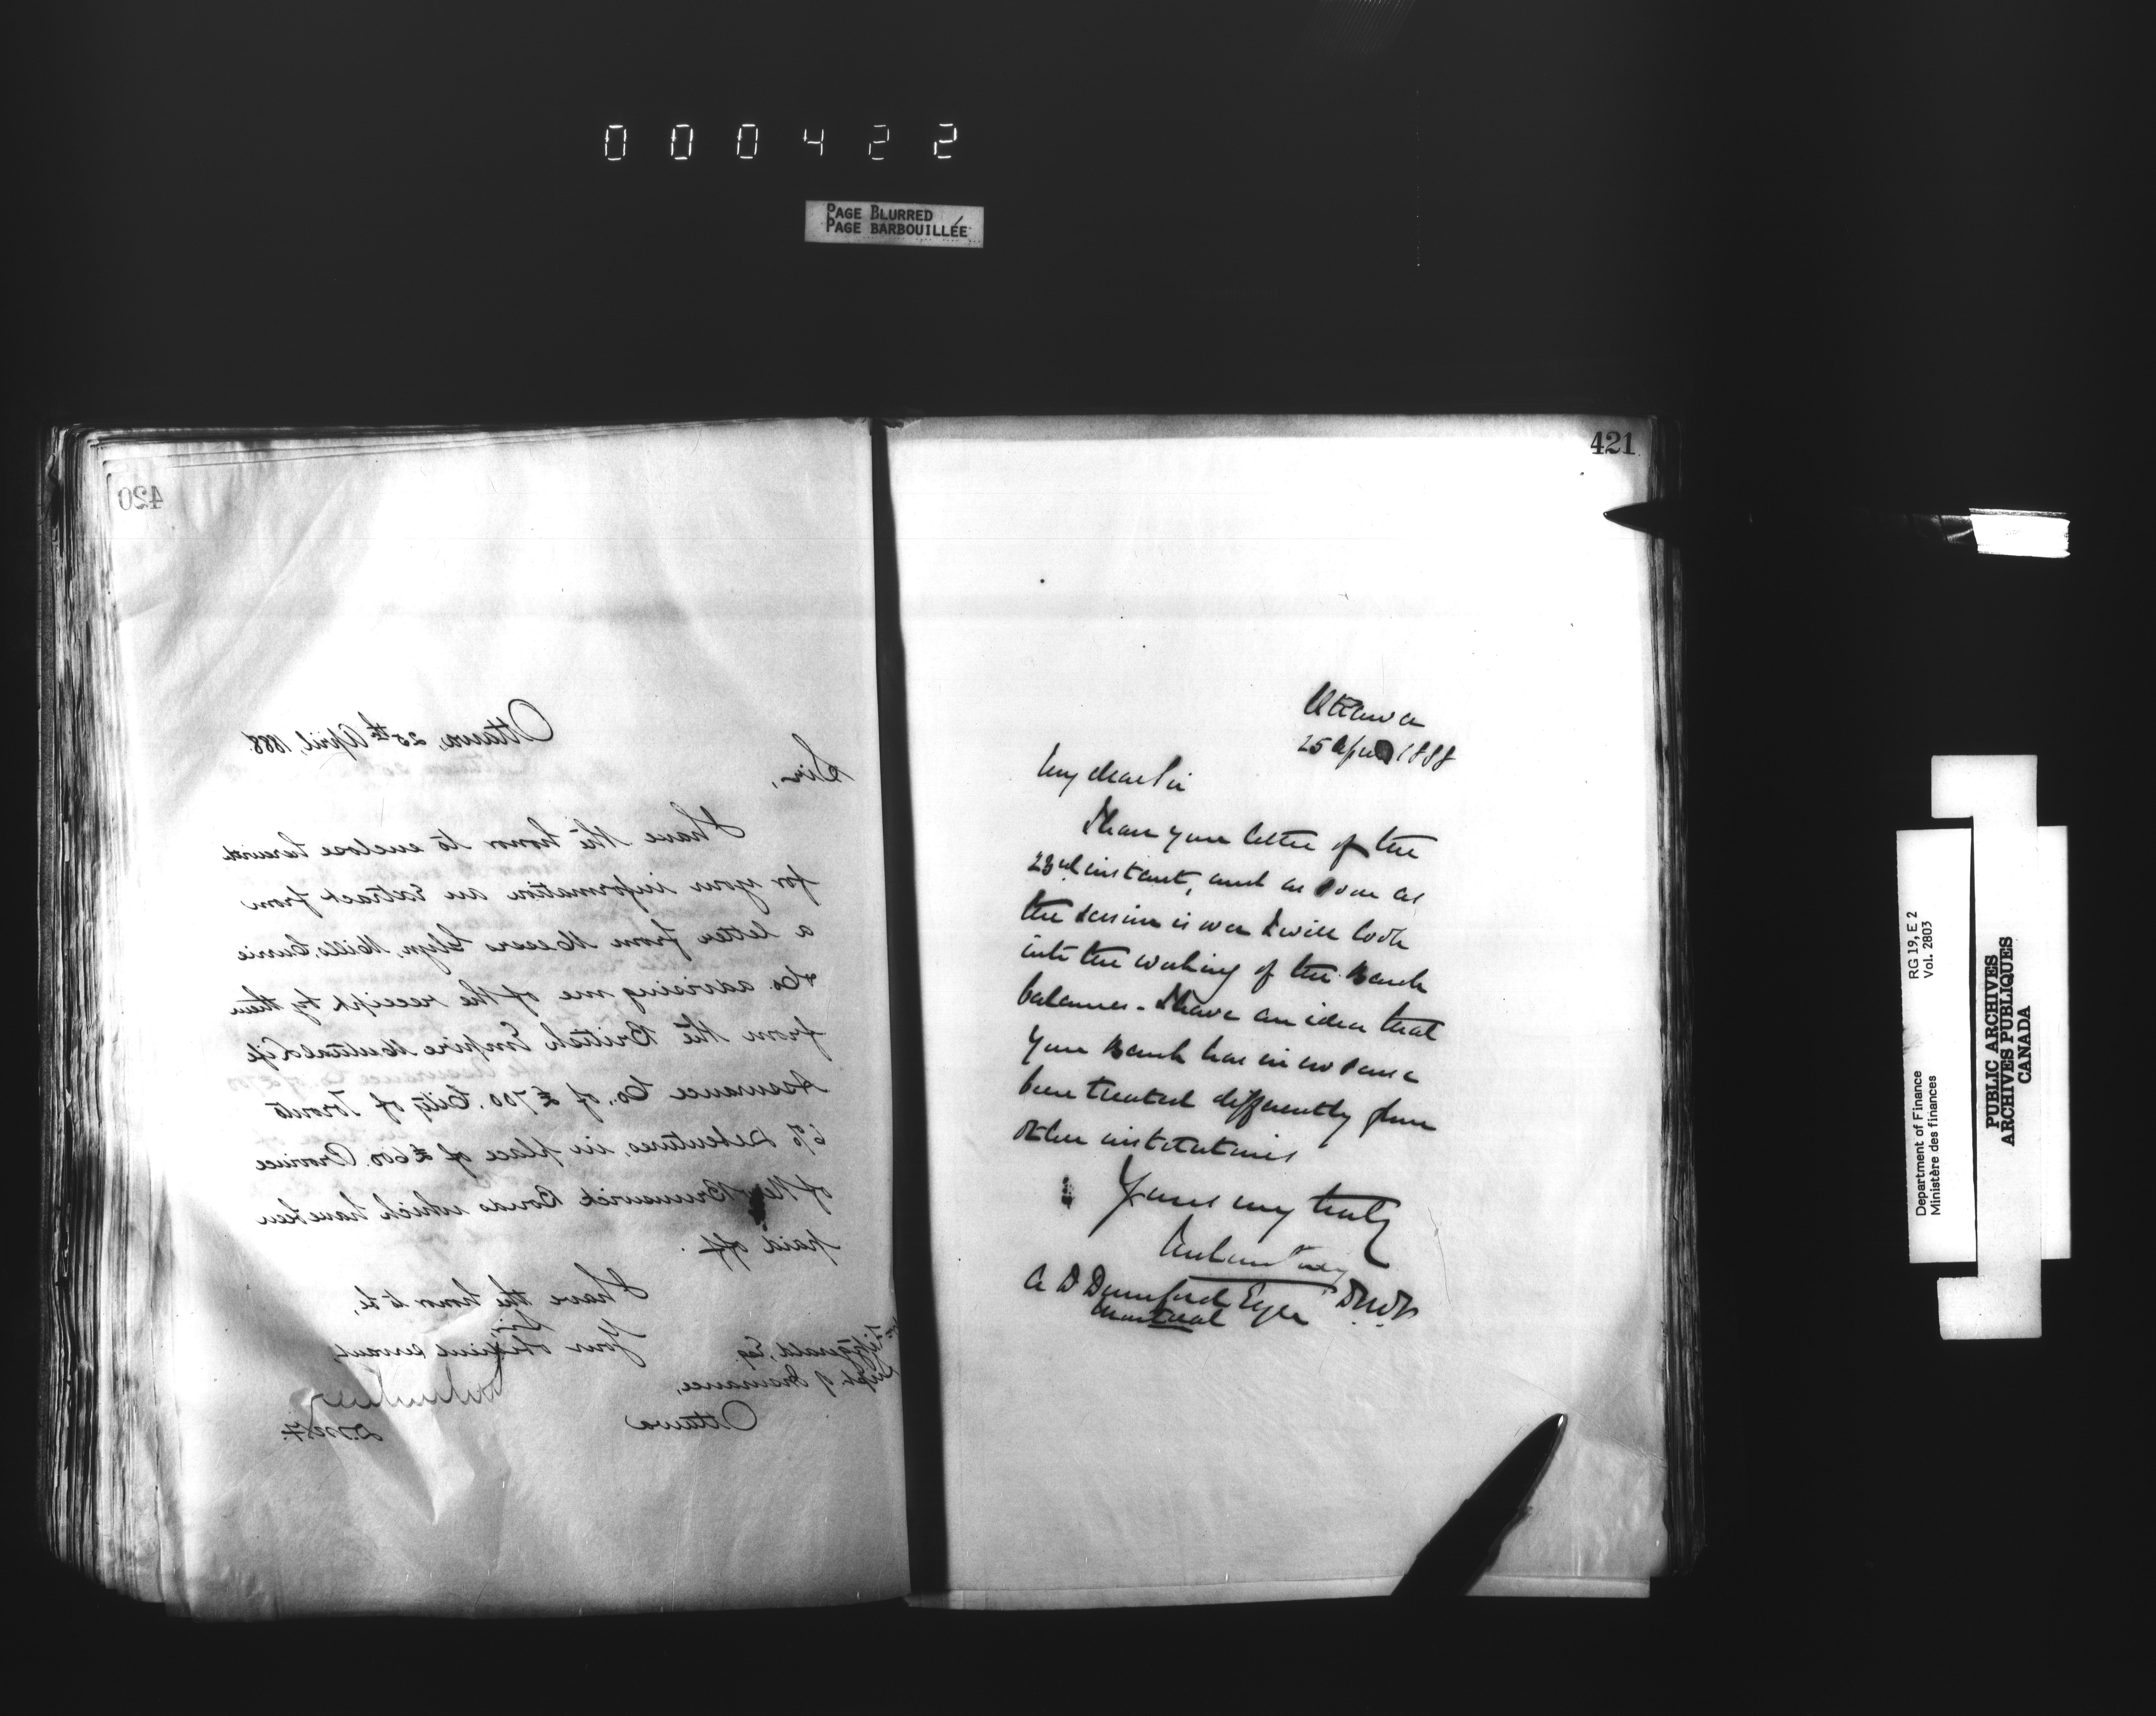 000422
PAGE BLURRED
PAGE BARBOUILLÉE
420
Ottawa, 25th April, 1888.
Sir,
I have the honor to enclose herewith
for your information an Extract from
a letter from Messrs Glyn, Mills, Currie
& Co. advising me of the receipt by them
from the British Empire Mutual Life
Assurance Co. of £700. City of Toronto
6% Debentures, in place of £600. Province
of New Brunswick Bonds which have been
paid off.
I have the honor to be,
Sir,
Your obedient servant,
D.M.F.
Fitzgerald, Esq
Supt. of Insurance,
Ottawa
421
Ottawa
25 April 1888
My dear Sir
I have your letter of the
23rd instant, and as soon as
the session is over I will look
into the working of the Bank
balances - I have an idea that
your Bank has in no sense
been treated differently from
other institutions
Yours very truly
D.M.F.
A D Durnford Esqre
Montreal
RG 19, E 2
Vol. 2803
Department of Finance
Ministère des finances
PUBLIC ARCHIVES
ARCHIVES PUBLIQUES
CANADA